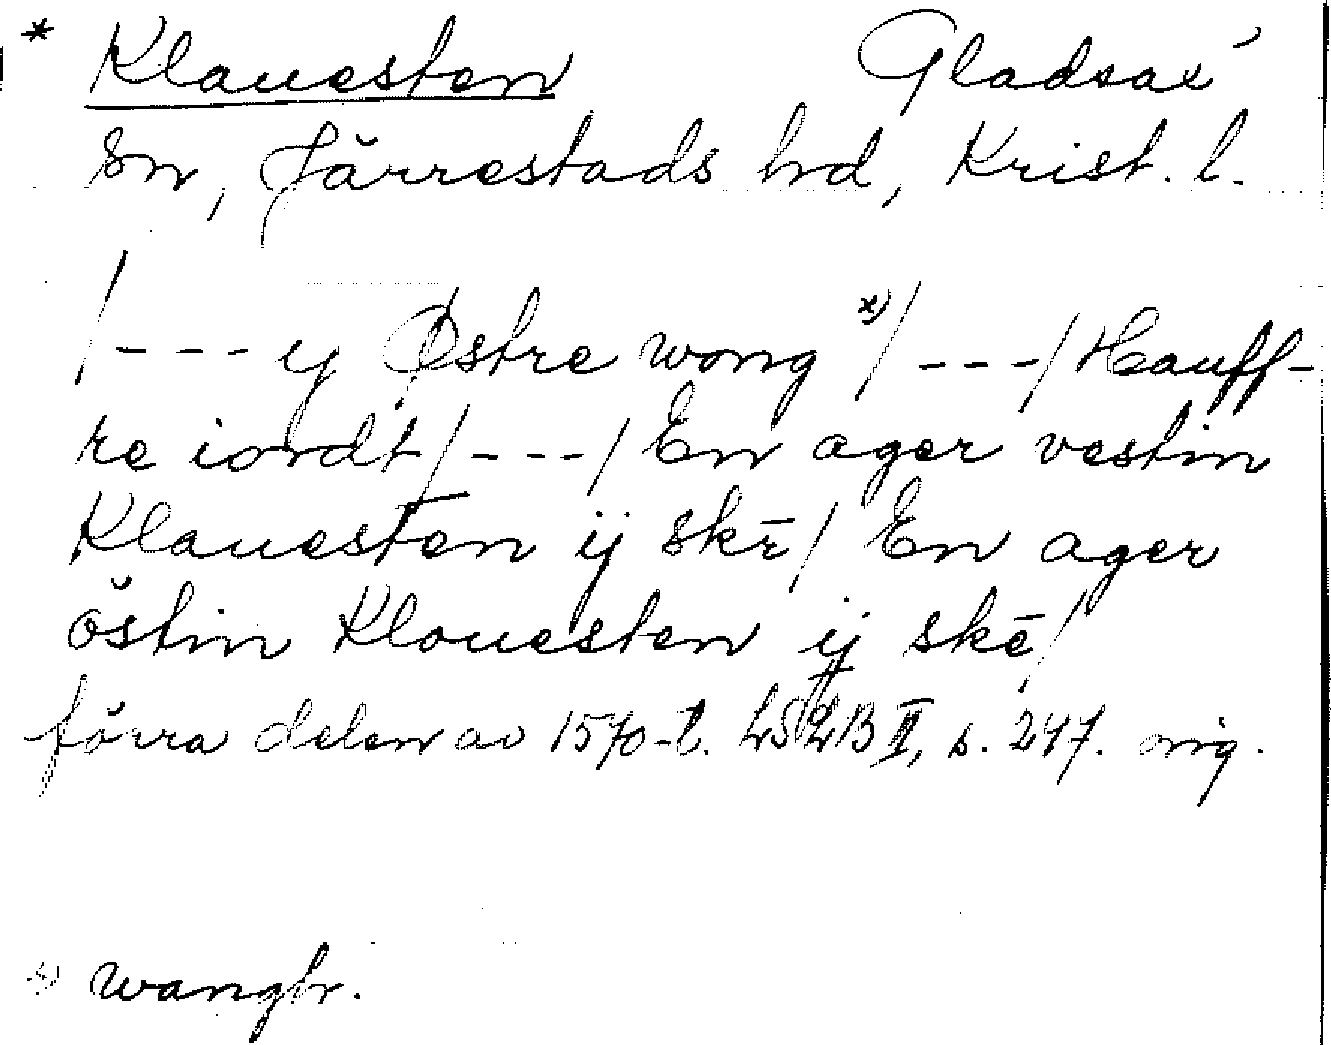 * Klauesten Gladsax
sn, Järrestads hrd, Krist. l.
/--- ij Østre wong x)/ ---/ Hauff-
re iordt/ ---/ En ager vestin
Klauesten ij skē/ En ager
östin Klouesten ij skē/
förra delen av 1570-t. LSLB II, s. 247. orig.
x) wangbr.